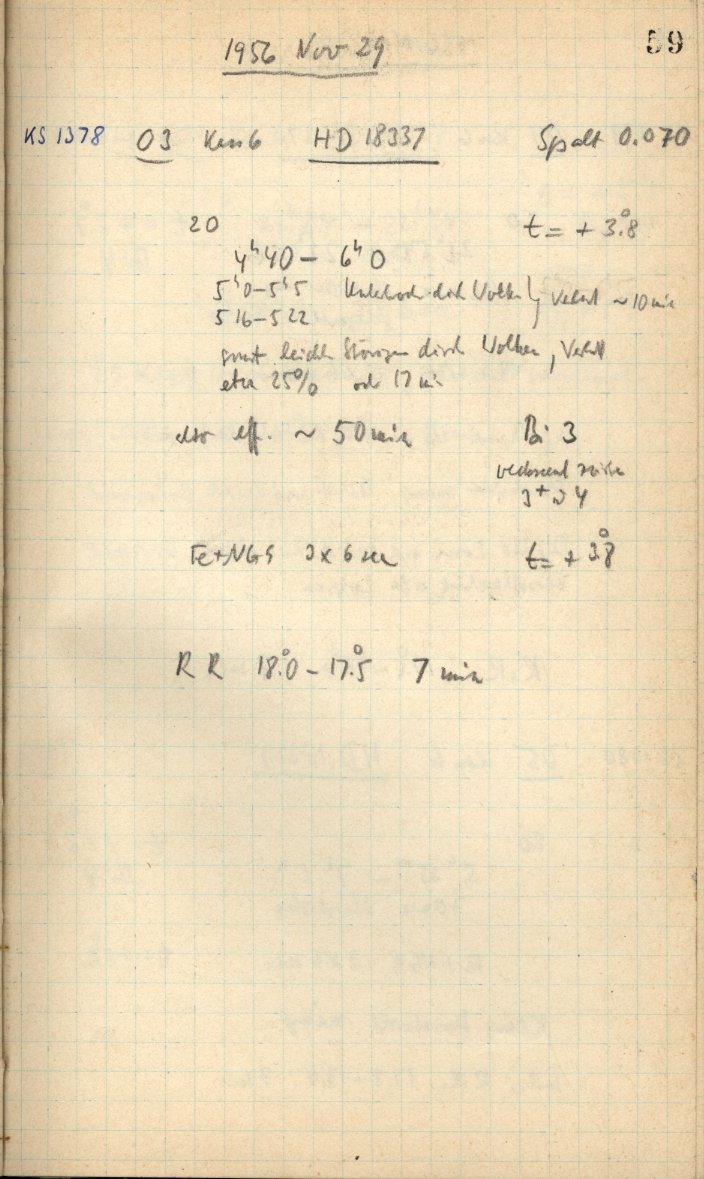 59
1956 Nov 29
KS 1378 03 Kass 6 HD 18337 Spalt 0.070
20 t = + 3°.8
4ʰ40 – 6ʰ0
5ʰ0–5ʰ5 durch Wolken } Verlust ~ 10 min
5 16–5 22
sonst leichte Störungen durch Wolken, Verlust
etwa 25% oder 17 min
also eff. ~ 50 min Bi 3
3+ 4
Fe+NGS 3 x 6 sec t = + 3°.8
R R 18°.0 – 17°.5 7 min